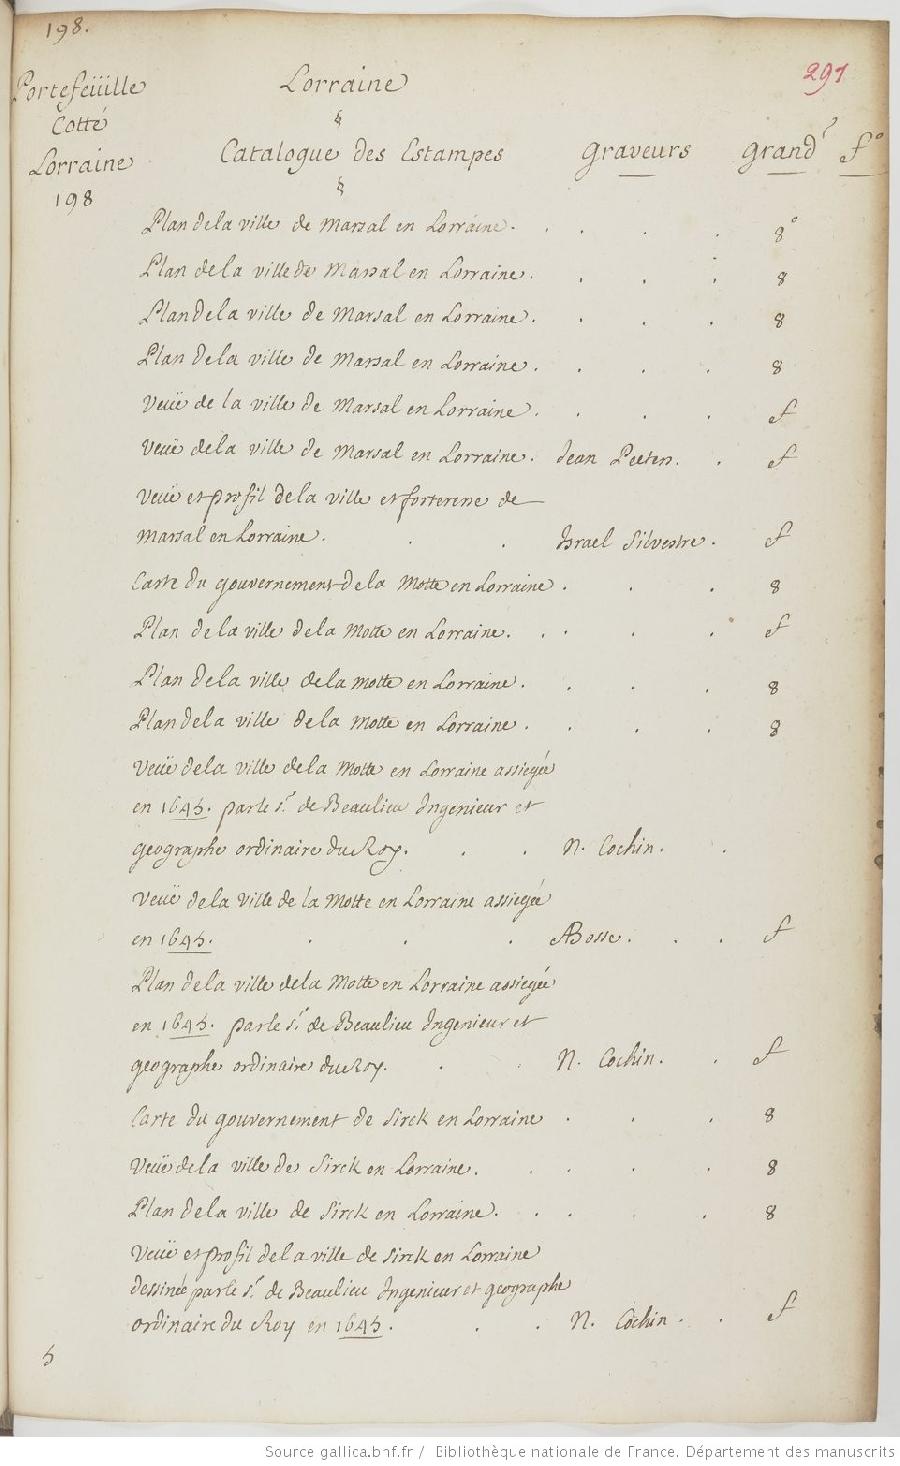 198.
291
Portefeüille
Cotté
Lorraine
198
Lorraine
Catalogue des Estampes Graveurs grand.r f.o
Plan de la ville de Marsal en Lorraine. 8°
Plan de la ville de Marsal en Lorraine. 8
Plan de la ville de Marsal en Lorraine. 8
Plan de la ville de Marsal en Lorraine. 8
Veüe de la ville de Marsal en Lorraine. f
Veüe de la ville de Marsal en Lorraine. Jean Peeters. f
Veüe et profil de la ville et forteresse de
Marsal en Lorraine. Israel Silvestre. f
Carte du gouvernement de la Motte en Lorraine. 8
Plan de la ville de la Motte en Lorraine. f
Plan de la ville de la Motte en Lorraine. 8
Plan de la ville de la Motte en Lorraine. 8
Veüe de la ville de la Motte en Lorraine assiegée
en 1645. par le s.r de Beaulieu Ingenieur et
geographe ordinaire du Roy. N. Cochin.
Veüe de la ville de la Motte en Lorraine assiegée
en 1645. ABosse. f
Plan de la ville de la Motte en Lorraine assiegée
en 1645. par le s.r de Beaulieu Ingenieur et
geographe ordinaire du Roy. N. Cochin. f
Carte du gouvernement de Sirck en Lorraine 8
Veüe de la ville de Sirck en Lorraine. 8
Plan de la ville de Sirck en Lorraine. 8
Veüe et profil de la ville de Sirck en Lorraine
dessinée par le s.r de Beaulieu Ingenieur et geographe
ordinaire du Roy en 1645. N. Cochin. f
5
Source gallica.bnf.fr / Bibliothèque nationale de France. Département des manuscrits